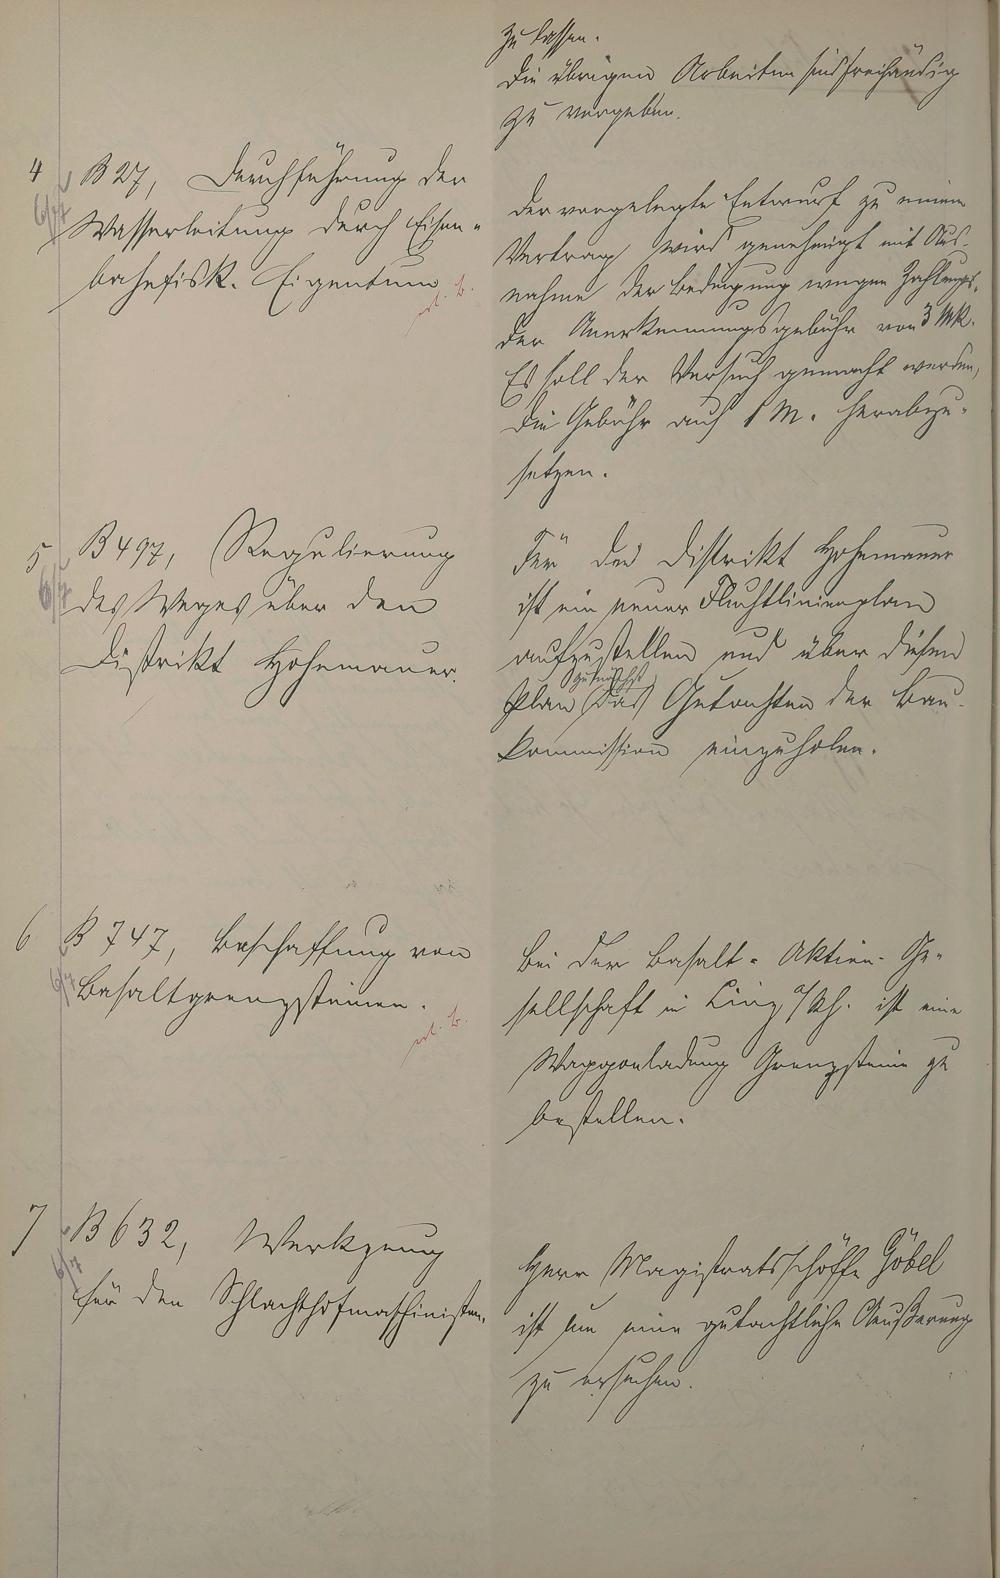 zu lassen.
Die übrigen Arbeiten sind freihändig
zu vergeben.
4 B 27, Durchführung der
Wasserleitung durch Eisen-
bahnfisk. Eigentum
Der vorgelegte Entwurf zu einem
Vertrag wird genehmigt mit Aus-
nahme der Bedingung wegen Zahlung
der Anerkennungsgebühr von 3 Mk.
Es soll der Versuch gemacht werden,
die Gebühr auf 1 M. herabzu-
setzen.
5 B 497, Regulierung
des Weges über den
Distrikt Hohemauer.
Für den Distrikt Hohemauer
ist ein neuer Fluchtlinienplan
aufzustellen und über diesen
zunächst
Plan (das) Gutachten der Bau-
kommission einzuholen.
6 B 747, Beschaffung von
Basaltgrenzsteinen.
Bei der Basalt-Aktien-Ge-
sellschaft in Linz a/Rh. ist eine
Waggonladung Grenzsteine zu
bestellen.
7 B 632, Werkzeug
für den Schlachthofmaschinisten.
Herr Magistratsschöffe Göbel
ist um eine gutachtliche Äußerung
zu ersuchen.